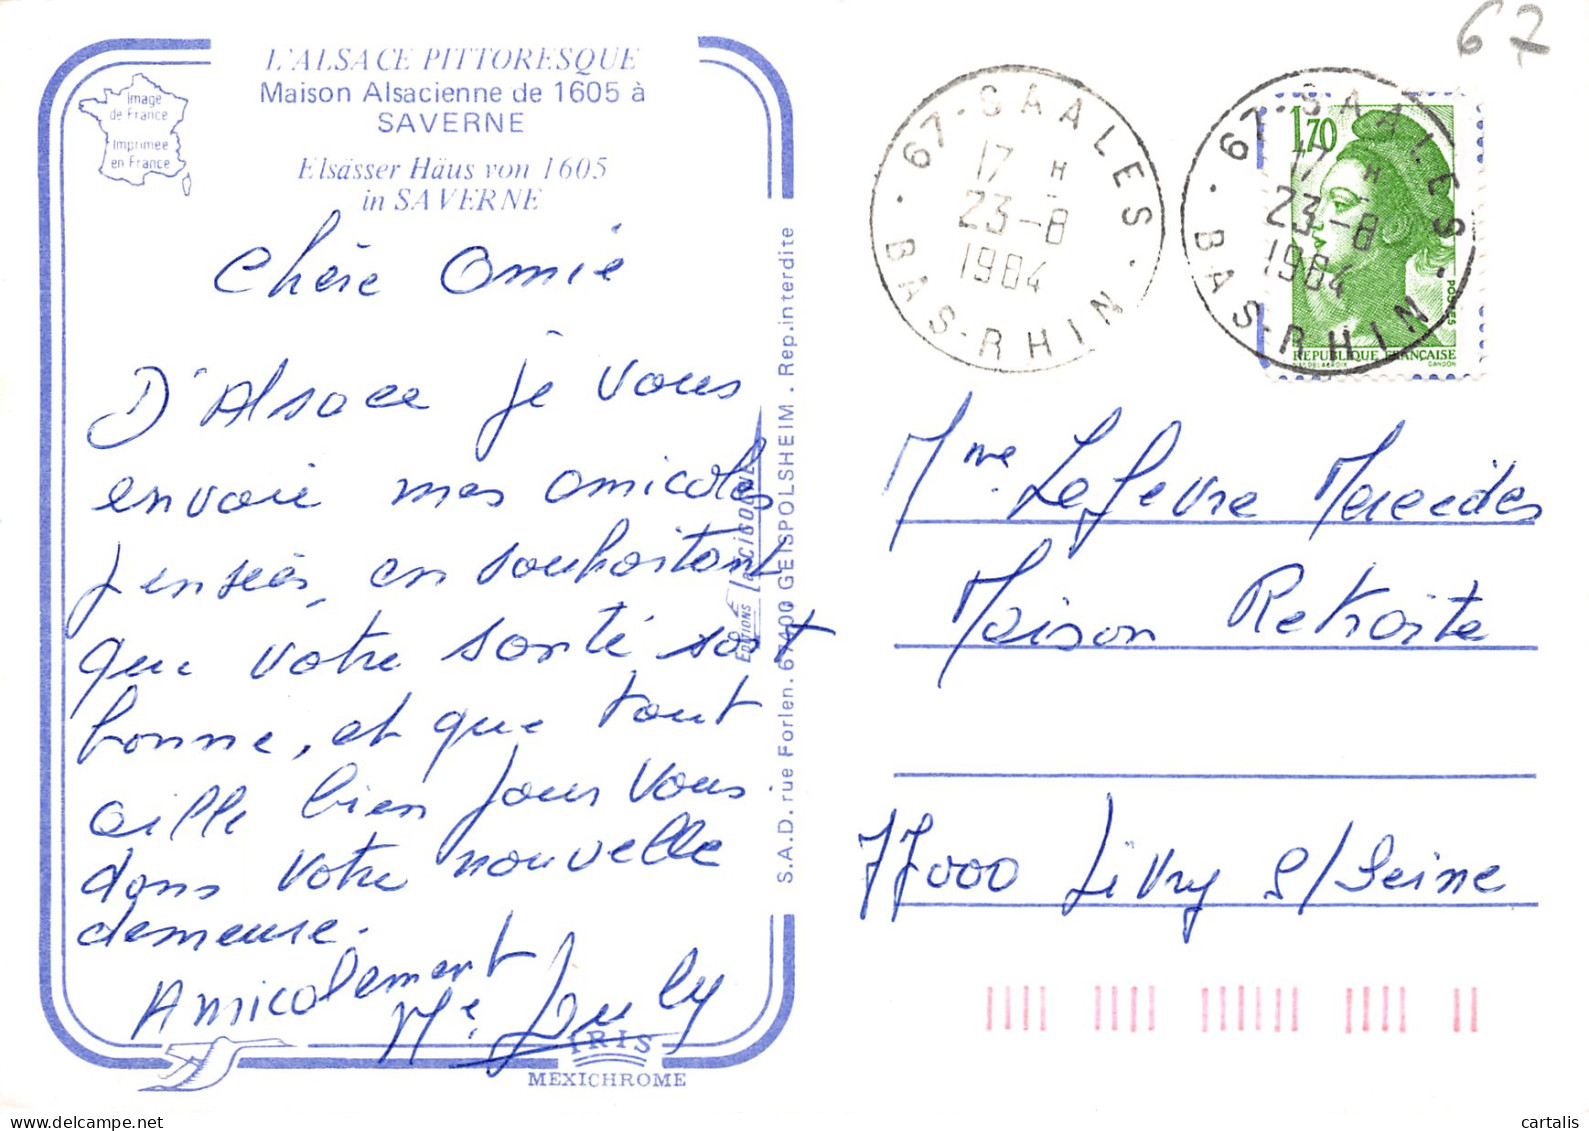 L'ALSACE PITTORESQUE
Maison Alsacienne de 1605 à
SAVERNE
Elsässer Häus von 1605
in SAVERNE
Image
de France
Imprimée
en France
Chère Amie
D'Alsace je vous
envoie mes amicales
pensées, en souhaitant
que votre santé soit
bonne, et que tout
aille bien pour vous
dans votre nouvelle
demeure.
Amicalement
Me.
IRIS
MEXICHROME
EDITIONS LA CIGOGNE
S.A.D. rue Forlen. 67400 GEISPOLSHEIM . Rep.interdite
67
67-SAALES
17 H
23-8
1984
BAS-RHIN
67-SAALES
17 H
23-8
1984
BAS-RHIN
1,70
POSTES
REPUBLIQUE FRANÇAISE
GANDON
Mme Lefevre Mercedes
Maison Retraite
77000 Livry s/Seine
cartalis
delcampe.net